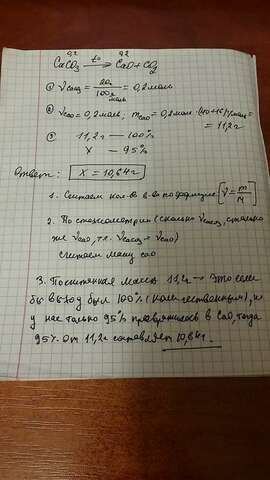 0,2 0,2
CaCO3 t° CaO + CO2
① νCaCO3 = 20г / 100 г/моль = 0,2 моль
② νCaO = 0,2 моль, mCaO = 0,2 моль · (40+16) г/моль =
= 11,2 г
③ 11,2 г — 100%
X — 95%
Ответ: X = 10,64 г
1. Считаем кол-во в-ва по формуле ν = m/M
2. По стехиометрии (сколько νCaCO3, столько
же νCaO, т.к. νCaCO3 = νCaO)
считаем массу CaO
3. Посчитанная масса 11,2 г — это если
бы выход был 100% (количественным), но
у нас только 95% превратилось в CaO, тогда
95% от 11,2 г составляет 10,64 г.